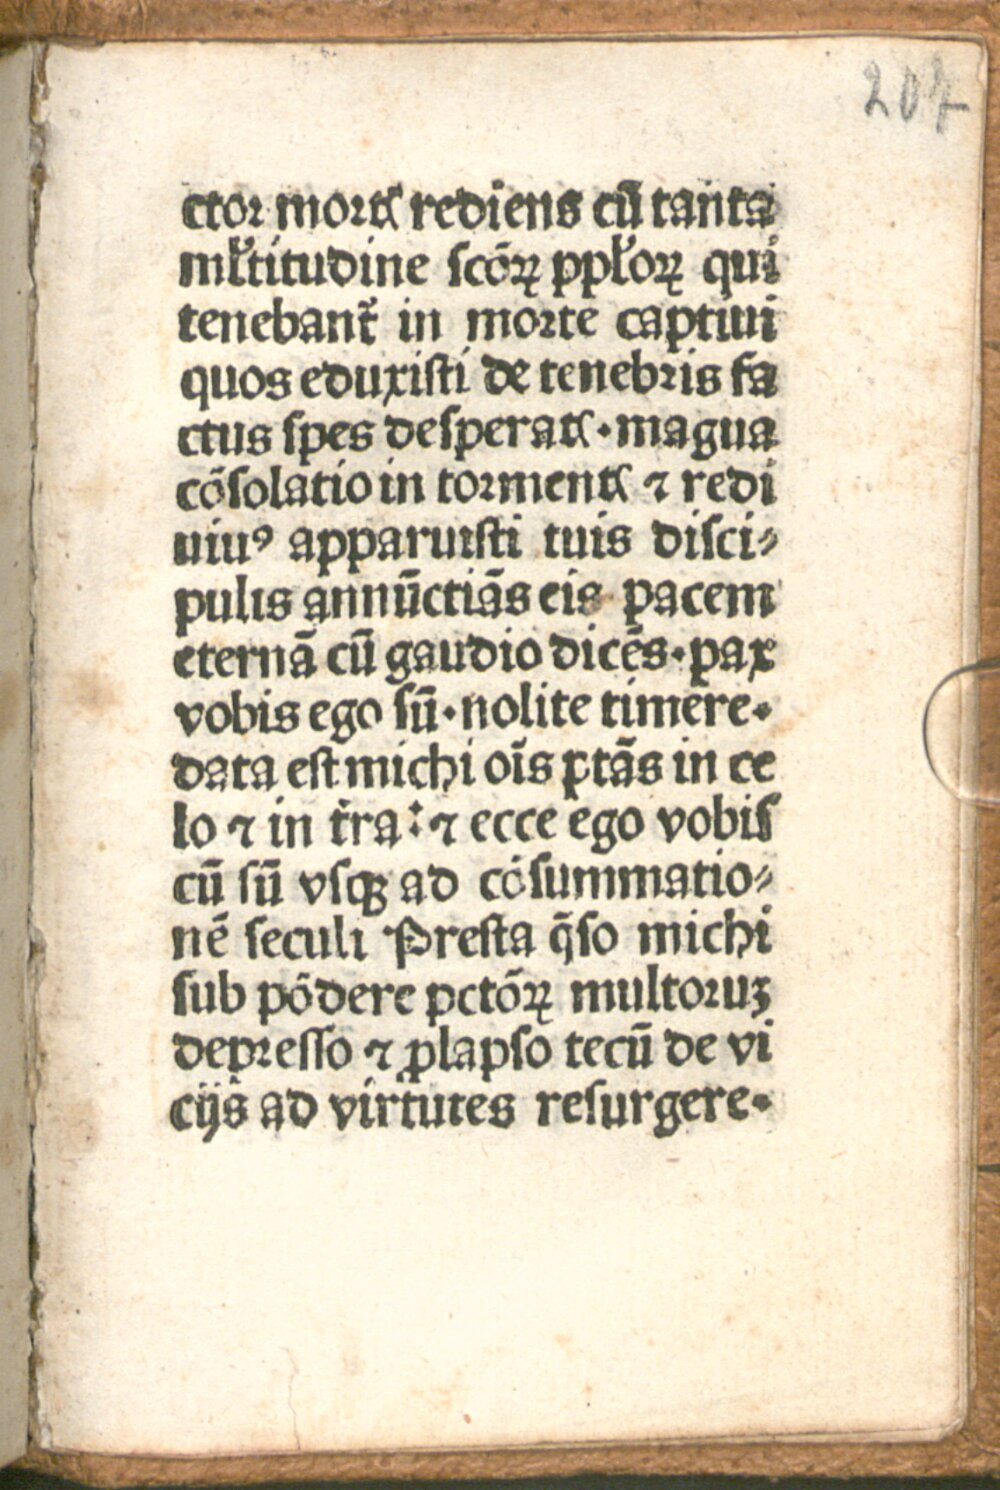 207
ctor mortꝭ rediens cū tanta
ml̃titudine scõꝝ ppl̃oꝝ qui
tenebant᷑ in morte captiui
quos eduxisti de tenebris fa
ctus spes desperatꝭ · magna
cōsolatio in tormentꝭ ⁊ redi
uiuꝰ apparuisti tuis disci⸗
pulis annūctiās eis pacem
eternā cū gaudio dicēs · pax
vobis ego sū · nolite timere ·
data est michi oīs ptās in ce
lo ⁊ in t̄ra : ⁊ ecce ego vobis
cū sū vsqꝫ ad cōsummatio⸗
nē seculi Presta q̄so michi
sub pōdere pctōꝝ multoruꝫ
depresso ⁊ ꝓlapso tecū de vi
cijs ad virtutes resurgere ·